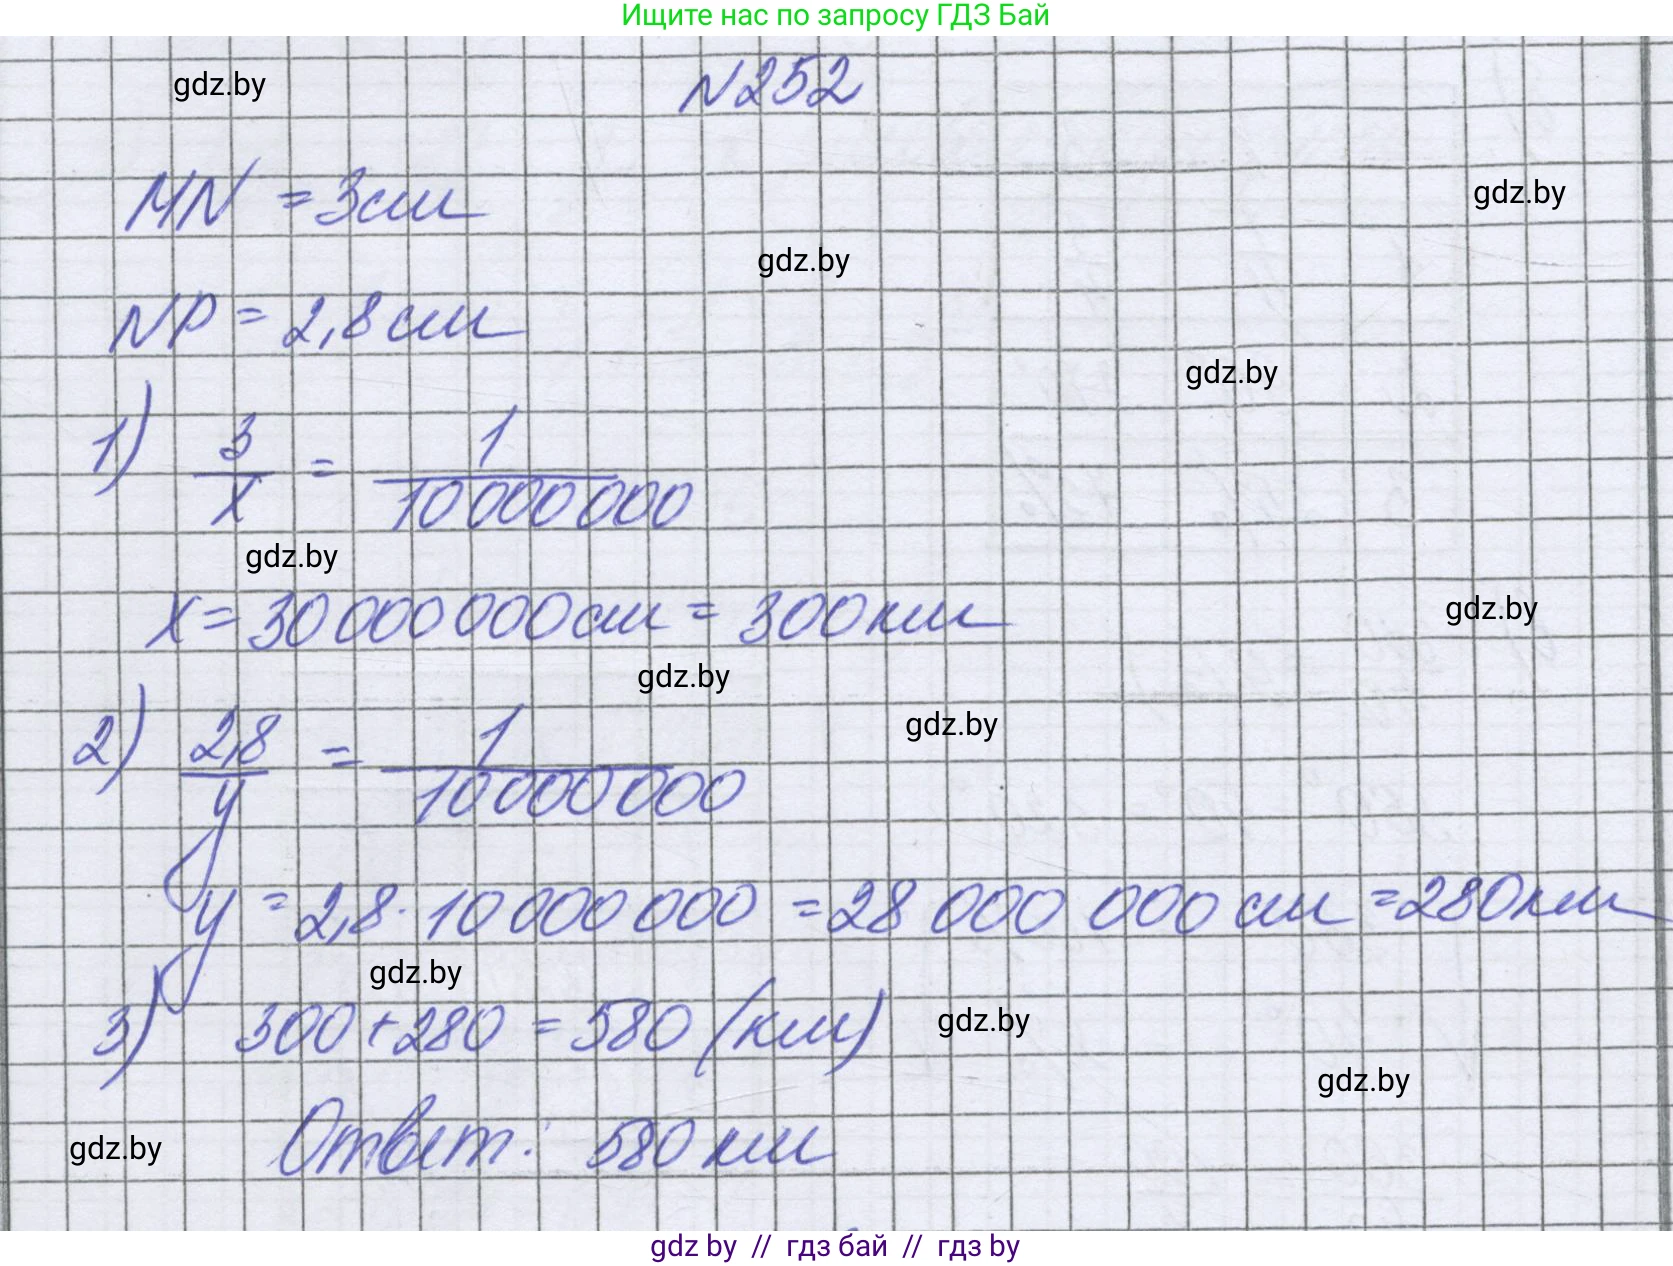 Ищите нас по запросу ГДЗ Бай
gdz.by
N252
MN = 3см
gdz.by
gdz.by
NP = 2,8 см
gdz.by
1) 3/x = 1/10 000 000
gdz.by
x = 30 000 000 см = 300 км
gdz.by
gdz.by
gdz.by
2) 2,8/y = 1/10 000 000
y = 2,8 · 10 000 000 = 28 000 000 см = 280 км
gdz.by
3) 300 + 280 = 580 (км)
gdz.by
gdz.by
Ответ: 580 км
gdz.by
gdz by // гдз бай // гдз by